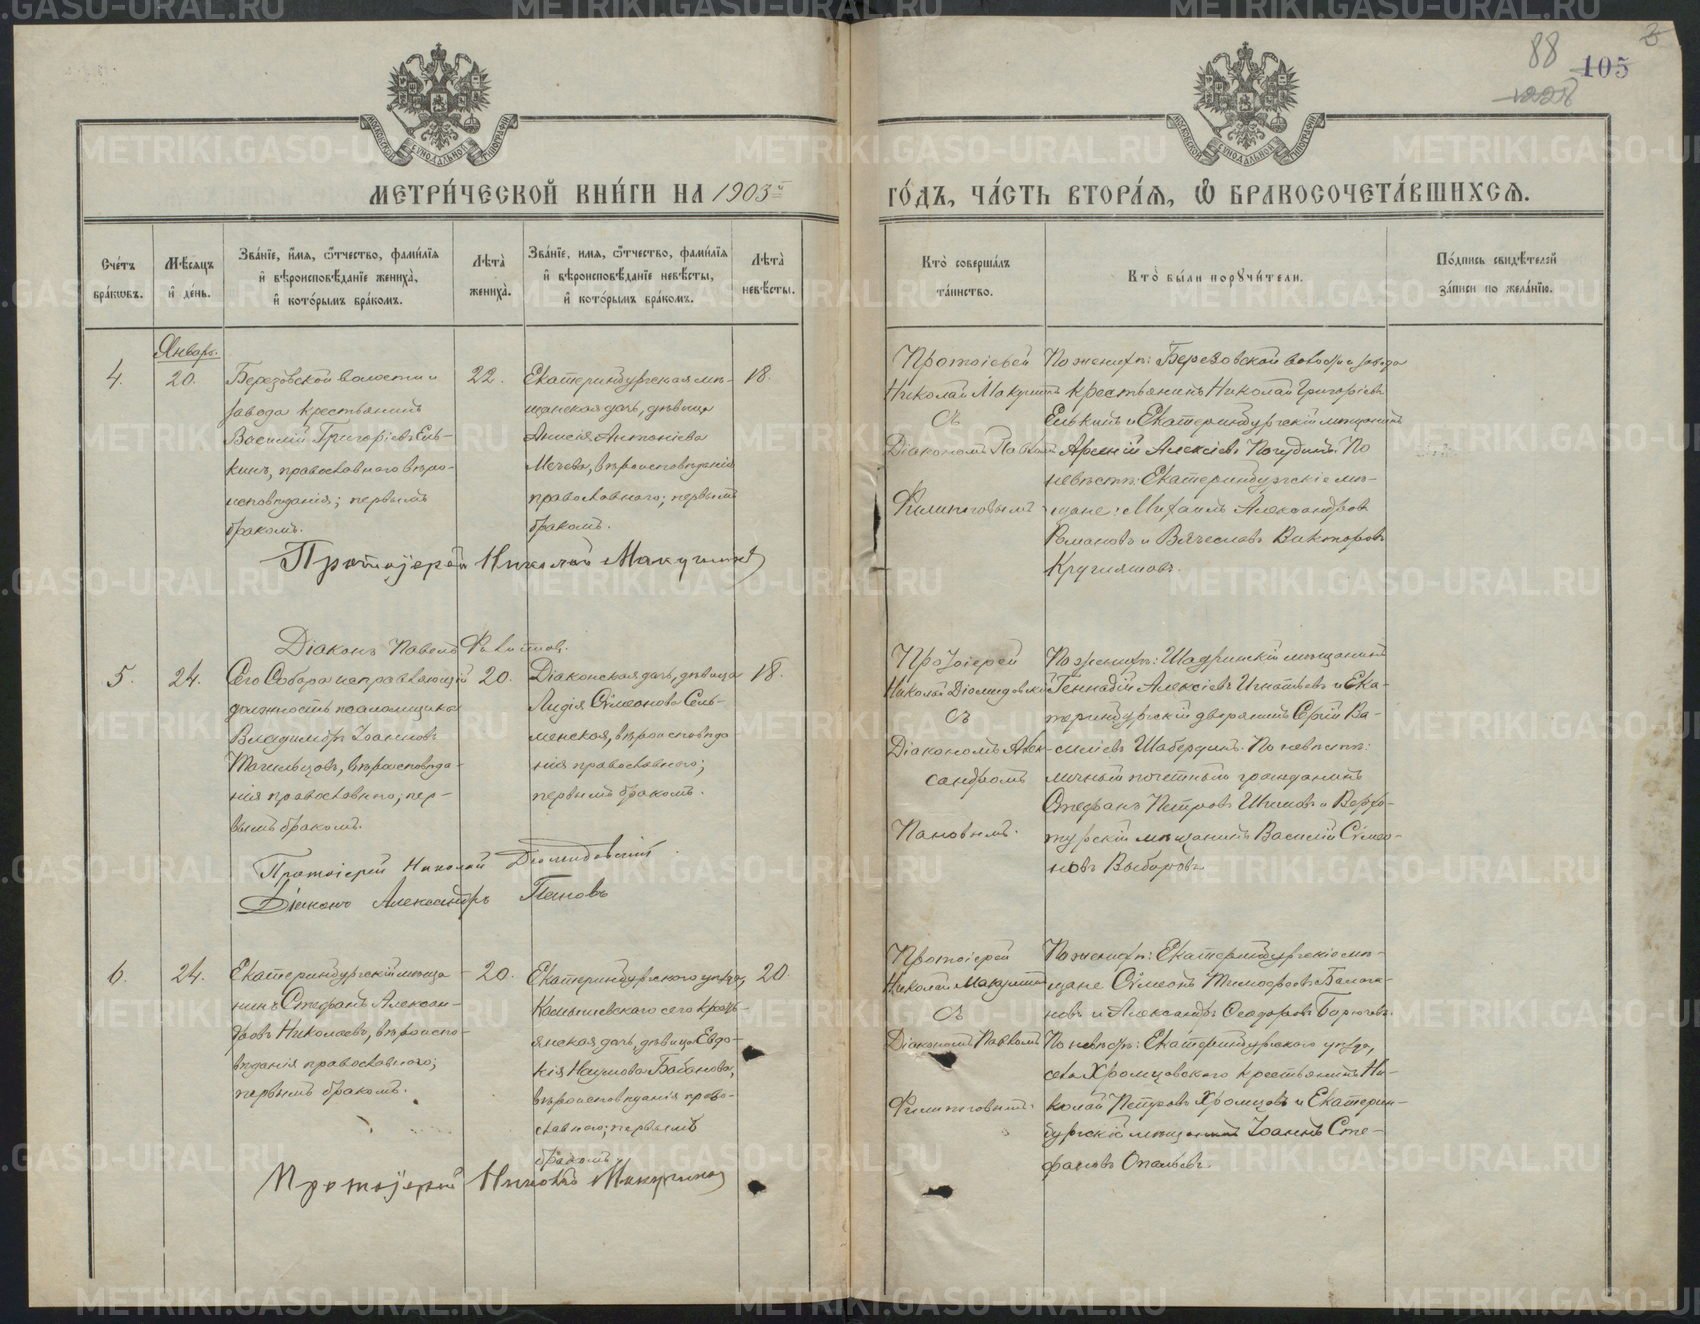 88
105
МЕТРИ́ЧЕСКОЙ КНИ́ГИ НА 1903й
ГО́ДЪ, ЧА́СТЬ ВТОРА́Я, Ѽ БРАКОСОЧЕТА́ВШИХСЯ.
Сче́тъ
бра́кѡвъ.
Мѣ́сяцъ
и҆ де́нь.
Зва́нїе, и҆́мя, ѻ҆́тчество, фами́лїя
и҆ вѣроисповѣ́данїе жениха̀,
и҆ кото́рымъ бра́комъ.
Лѣта̀
жениха̀.
Зва́нїе, и҆мя, ѻ҆́тчество, фами́лїя
и҆ вѣроисповѣ́данїе невѣ́сты,
и҆ кото́рымъ бра́комъ.
Лѣта̀
невѣ́сты.
Кто̀ соверша́лъ
та́инство.
Кто̀ бы́ли порꙋчи́тели.
По́дпись свидѣ́телей
за́писи по жела́нїю.
Январь.
4.
20.
Березовской волости и
завода крестьянинъ
Василій Григоріевъ Ель-
кинъ, православнаго вѣро-
исповѣданія; первымъ
бракомъ.
22.
Екатеринбургская мѣ-
щанская дочь, дѣвица
Анисія Антоніева
Мечева, вѣроисповѣданія
православнаго; первымъ
бракомъ.
18.
Протоіерей
Николай Макушинъ
съ
Діакономъ Павломъ
Филитовымъ
По женихѣ: Березовской волости и завода
крестьянинъ Николай Григоріевъ
Елькинъ и Екатеринбургскій мѣщанинъ
Арсеній Алексіевъ Погудинъ. По
невѣстѣ: Екатеринбургскіе мѣ-
щане: Михаилъ Александровъ
Романовъ и Вячеславъ Викторовъ
Кругляшовъ.
Протоіерей Николай Макушинъ
Діаконъ Павелъ Филитовъ.
5.
24.
Сего Собора исправляющій
должность псаломщика
Владиміръ Іоанновъ
Тагильцовъ, вѣроисповѣда-
нія православнаго; пер-
вымъ бракомъ.
20.
Діаконская дочь, дѣвица
Лидія Сімеонова Сель-
менская, вѣроисповѣда
нія православнаго;
первымъ бракомъ.
18.
Протоіерей
Николай Діомидовскій
съ
Діакономъ Алек-
сандромъ
Пановымъ.
По женихѣ: Шадринскій мѣщанинъ
Геннадій Алексіевъ Игнатьевъ и Ека-
теринбургскій дворянинъ Сергій Ва-
силіевъ Шабердинъ. По невѣстѣ:
личный почетный гражданинъ
Стефанъ Петровъ Шишовъ и Верхо-
турскій мѣщанинъ Василій Сімео-
новъ Выборовъ
Протоіерей Николай Діомидовскій.
Діаконъ Александръ Пановъ
6.
24.
Екатеринбургскій мѣща
нинъ Стефанъ Алексан-
дровъ Николаевъ, вѣроиспо-
вѣданія православнаго;
первымъ бракомъ.
20.
Екатеринбургскаго уѣзда,
Камышевскаго села кресть-
янская дочь, дѣвица Евдо-
кія Наумова Бабанова,
вѣроисповѣданія право-
славнаго; первымъ
бракомъ
20.
Протоіерей
Николай Макушинъ
съ
Діакономъ Павломъ
Филитовымъ.
По женихѣ: Екатеринбургскіе мѣ-
щане Сімеонъ Тимофеевъ Балага-
новъ и Александръ Ѳеодоровъ Барюговъ.
По невѣстѣ: Екатеринбургскаго уѣзда,
села Хромцовскаго крестьянинъ Ни-
колай Петровъ Хромцовъ и Екатерин-
бургскій мѣщанинъ Іоаннъ Сте-
фановъ Опалевъ.
Протоіерей Николай Макушинъ
METRIKI.GASO-URAL.RU